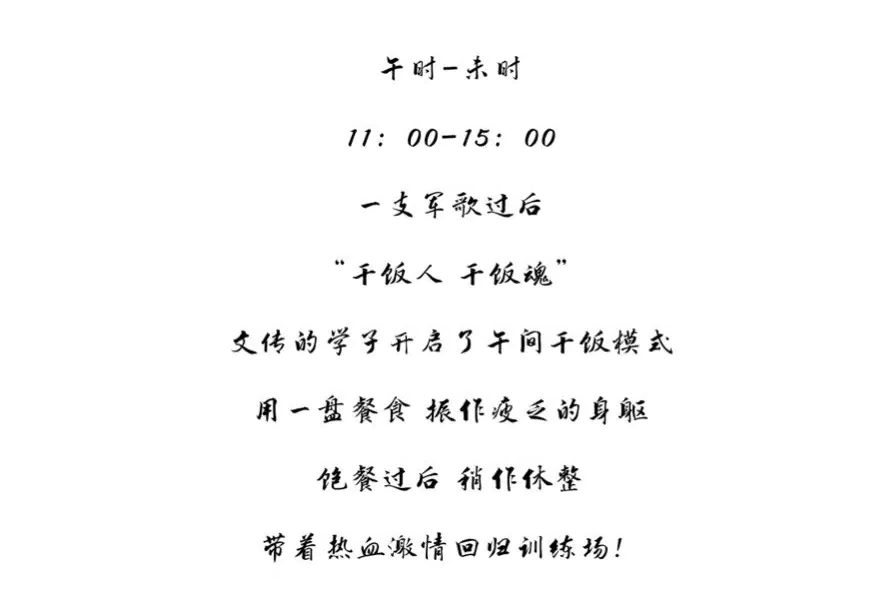 午时-未时
11：00-15：00
一支军歌过后
“干饭人 干饭魂”
文传的学子开启了午间干饭模式
用一盘餐食 振作疲乏的身躯
饱餐过后 稍作休整
带着热血激情回归训练场！